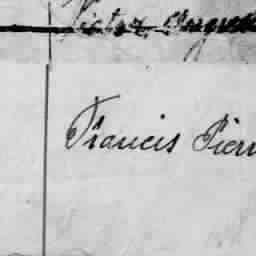 Victor August
Francis Pierr